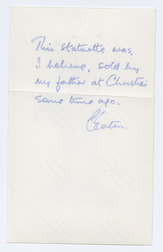 This statuette was,
I believe, sold by
my father at Christies
some time ago.
Eaton.